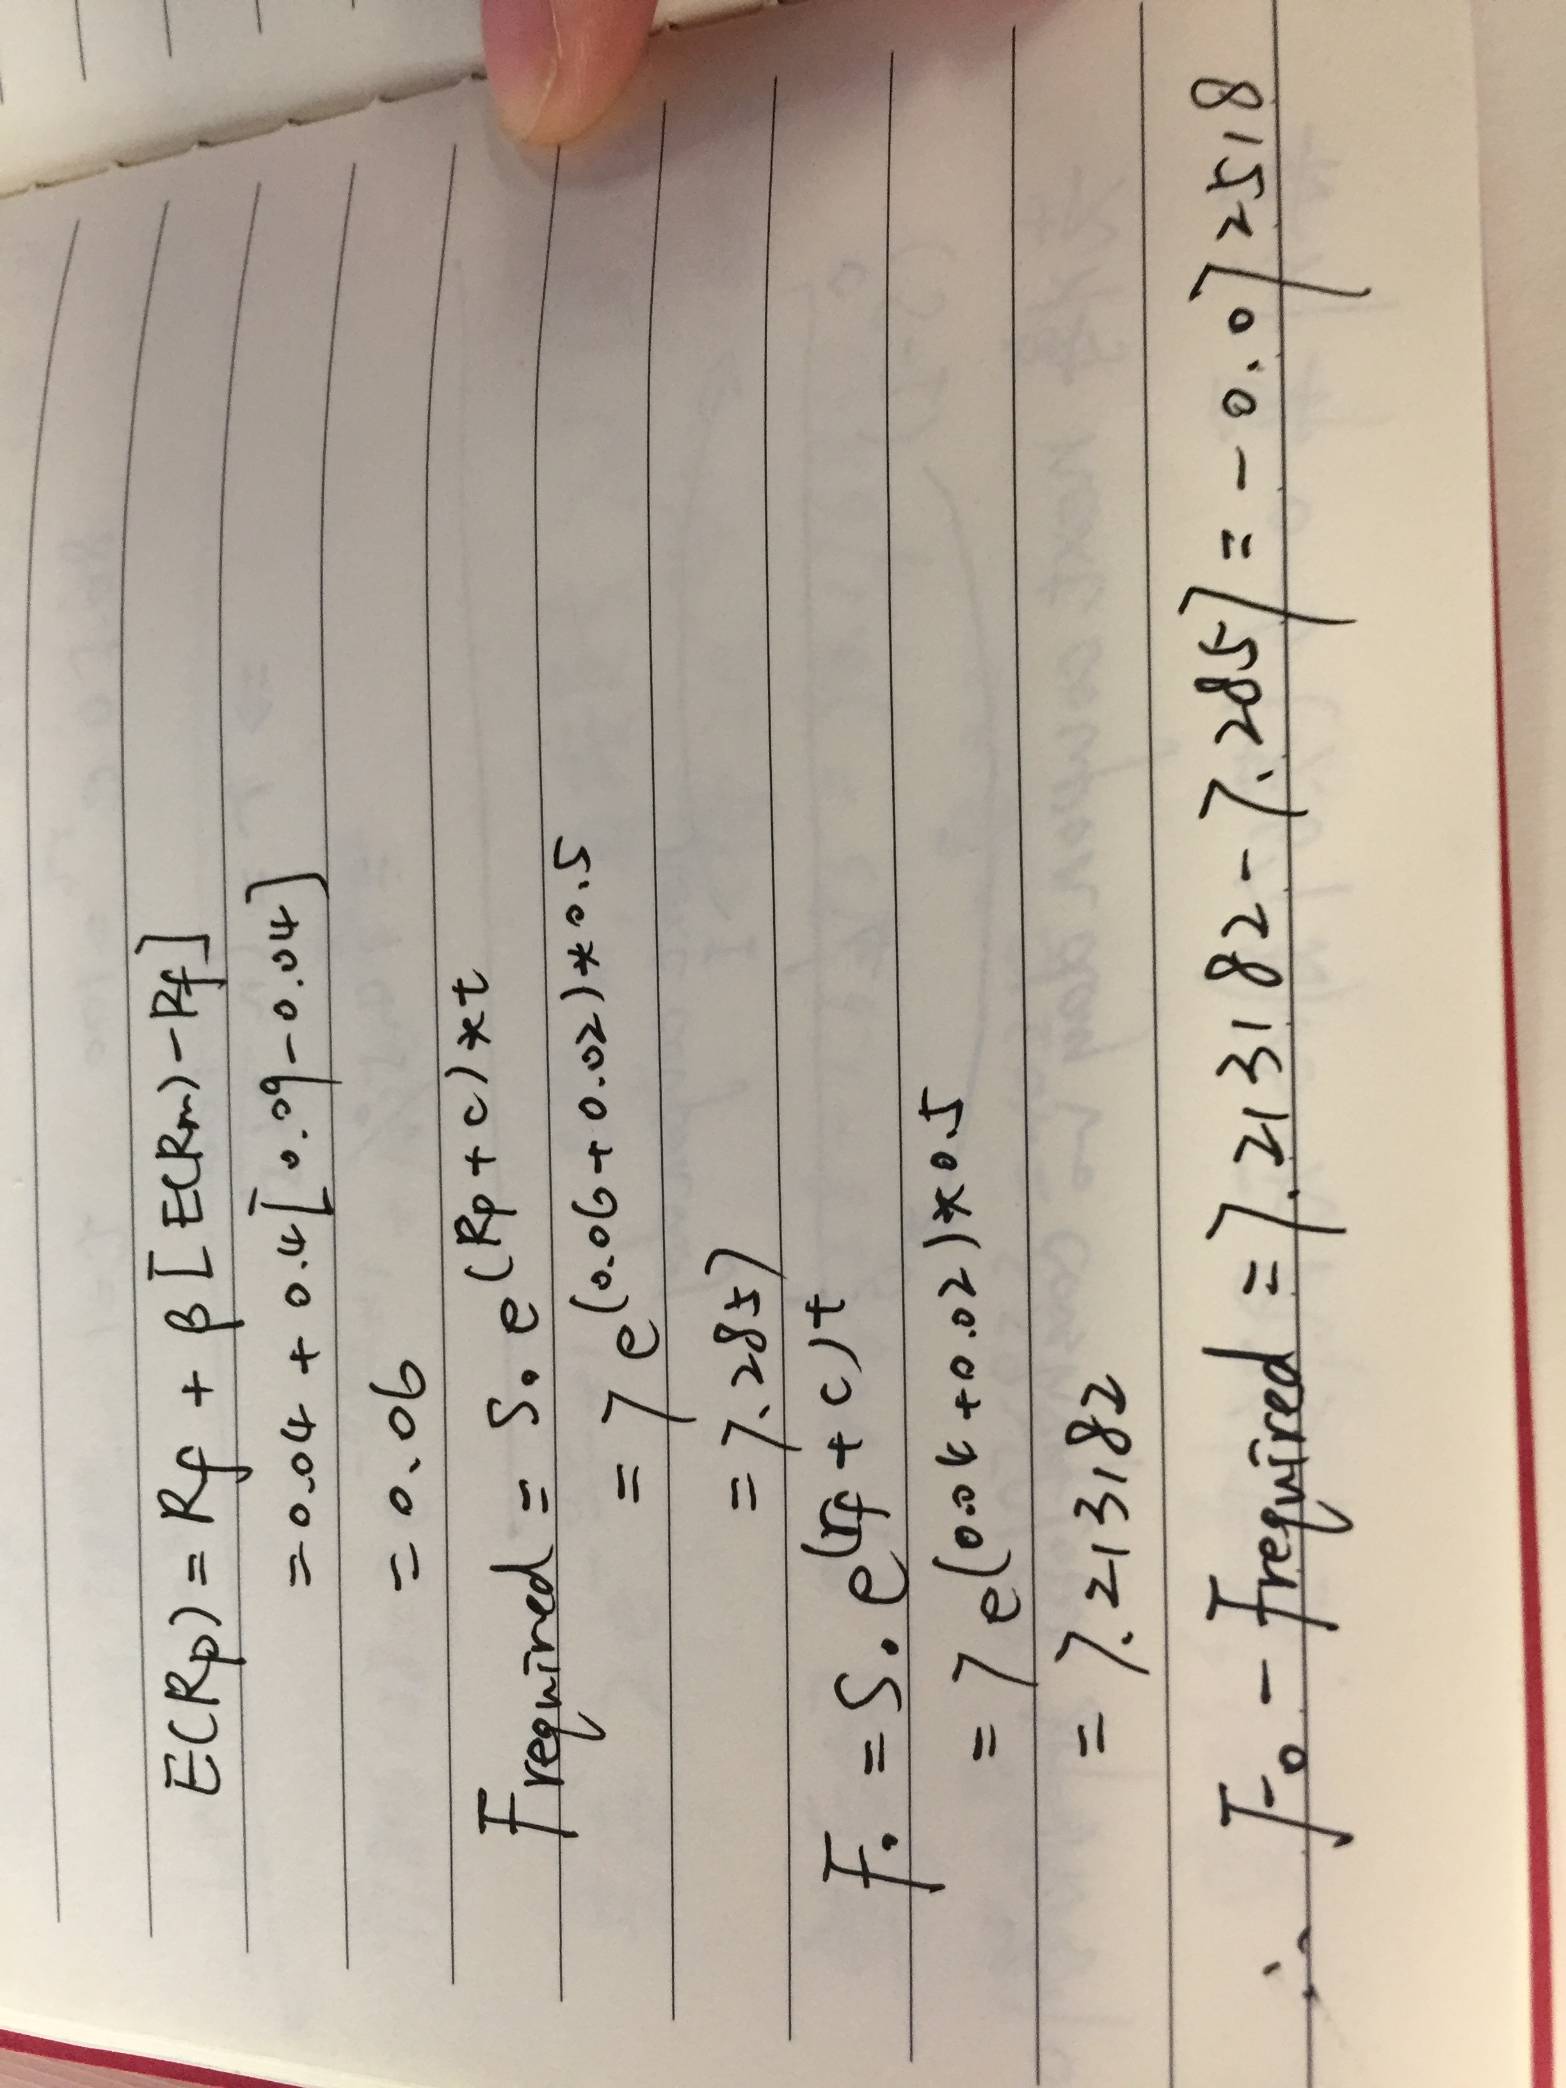 E(Rp) = Rf + β[E(Rm) - Rf]
= 0.04 + 0.4[0.09 - 0.04]
= 0.06
Frequired = S0 e(Rp + c)*t
= 7 e(0.06 + 0.02)*0.5
= 7.2857
F0 = S0 e(rf + c)t
= 7 e(0.04 + 0.02)*0.5
= 7.213182
∴ F0 - Frequired = 7.213182 - 7.2857 = -0.072518